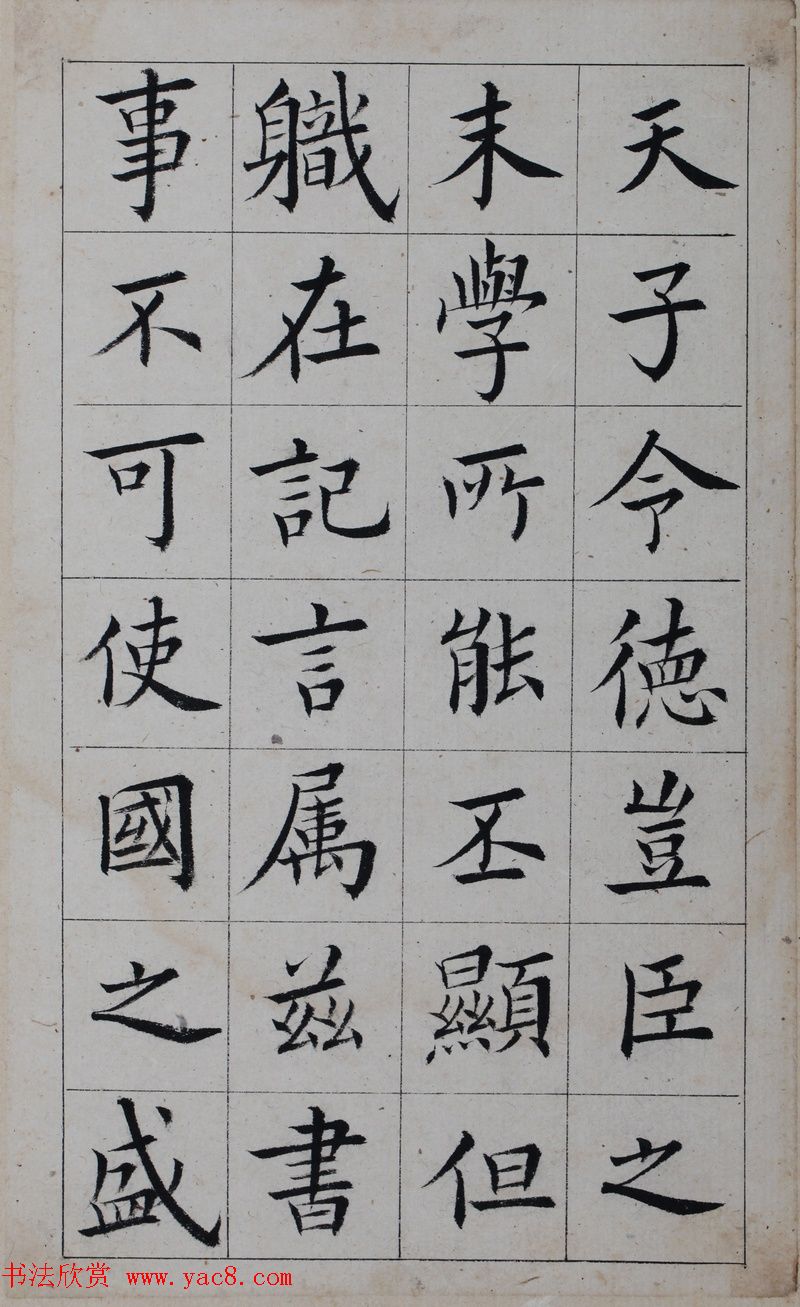 天子令德豈臣之
末學所能丕顯但
軄在記言属茲書
事不可使國之盛
书法欣赏 www.yac8.com